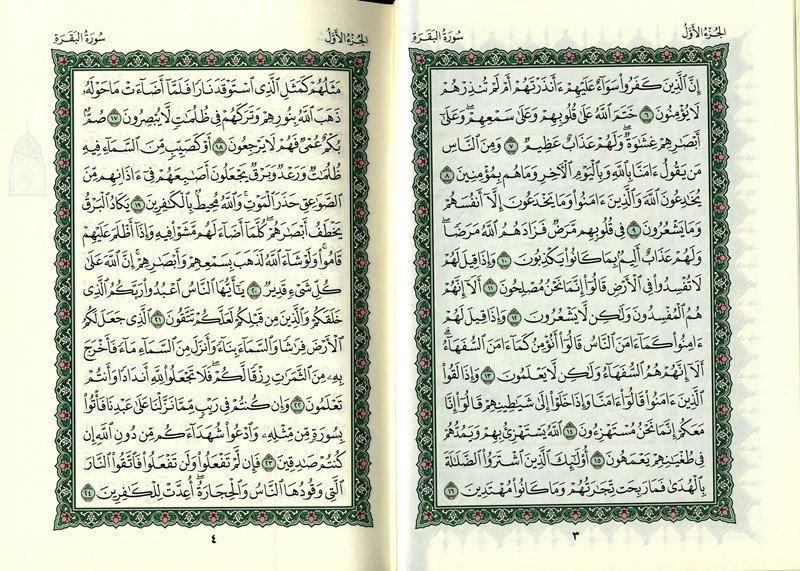 الجزء الأول
سورة البقرة
إِنَّ الَّذِينَ كَفَرُوا۟ سَوَآءٌ عَلَيْهِمْ ءَأَنذَرْتَهُمْ أَمْ لَمْ تُنذِرْهُمْ
لَا يُؤْمِنُونَ ٦ خَتَمَ اللَّهُ عَلَىٰ قُلُوبِهِمْ وَعَلَىٰ سَمْعِهِمْ ۖ وَعَلَىٰٓ
أَبْصَٰرِهِمْ غِشَٰوَةٌ ۖ وَلَهُمْ عَذَابٌ عَظِيمٌ ٧ وَمِنَ النَّاسِ
مَن يَقُولُ ءَامَنَّا بِاللَّهِ وَبِالْيَوْمِ الْءَاخِرِ وَمَا هُم بِمُؤْمِنِينَ ٨
يُخَٰدِعُونَ اللَّهَ وَالَّذِينَ ءَامَنُوا۟ وَمَا يَخْدَعُونَ إِلَّآ أَنفُسَهُمْ
وَمَا يَشْعُرُونَ ٩ فِى قُلُوبِهِم مَّرَضٌ فَزَادَهُمُ اللَّهُ مَرَضًا ۖ
وَلَهُمْ عَذَابٌ أَلِيمٌۢ بِمَا كَانُوا۟ يَكْذِبُونَ ١٠ وَإِذَا قِيلَ لَهُمْ
لَا تُفْسِدُوا۟ فِى الْأَرْضِ قَالُوٓا۟ إِنَّمَا نَحْنُ مُصْلِحُونَ ١١ أَلَآ إِنَّهُمْ
هُمُ الْمُفْسِدُونَ وَلَٰكِن لَّا يَشْعُرُونَ ١٢ وَإِذَا قِيلَ لَهُمْ
ءَامِنُوا۟ كَمَآ ءَامَنَ النَّاسُ قَالُوٓا۟ أَنُؤْمِنُ كَمَآ ءَامَنَ السُّفَهَآءُ ۗ
أَلَآ إِنَّهُمْ هُمُ السُّفَهَآءُ وَلَٰكِن لَّا يَعْلَمُونَ ١٣ وَإِذَا لَقُوا۟
الَّذِينَ ءَامَنُوا۟ قَالُوٓا۟ ءَامَنَّا وَإِذَا خَلَوْا۟ إِلَىٰ شَيَٰطِينِهِمْ قَالُوٓا۟ إِنَّا
مَعَكُمْ إِنَّمَا نَحْنُ مُسْتَهْزِءُونَ ١٤ اللَّهُ يَسْتَهْزِئُ بِهِمْ وَيَمُدُّهُمْ
فِى طُغْيَٰنِهِمْ يَعْمَهُونَ ١٥ أُو۟لَٰٓئِكَ الَّذِينَ اشْتَرَوُا۟ الضَّلَٰلَةَ
بِالْهُدَىٰ فَمَا رَبِحَت تِّجَٰرَتُهُمْ وَمَا كَانُوا۟ مُهْتَدِينَ ١٦
٣
الجزء الأول
سورة البقرة
مَثَلُهُمْ كَمَثَلِ الَّذِى اسْتَوْقَدَ نَارًا فَلَمَّآ أَضَآءَتْ مَا حَوْلَهُۥ
ذَهَبَ اللَّهُ بِنُورِهِمْ وَتَرَكَهُمْ فِى ظُلُمَٰتٍ لَّا يُبْصِرُونَ ١٧ صُمٌّۢ
بُكْمٌ عُمْىٌ فَهُمْ لَا يَرْجِعُونَ ١٨ أَوْ كَصَيِّبٍ مِّنَ السَّمَآءِ فِيهِ
ظُلُمَٰتٌ وَرَعْدٌ وَبَرْقٌ يَجْعَلُونَ أَصَٰبِعَهُمْ فِىٓ ءَاذَانِهِم مِّنَ
الصَّوَٰعِقِ حَذَرَ الْمَوْتِ ۚ وَاللَّهُ مُحِيطٌۢ بِالْكَٰفِرِينَ ١٩ يَكَادُ الْبَرْقُ
يَخْطَفُ أَبْصَٰرَهُمْ ۖ كُلَّمَآ أَضَآءَ لَهُم مَّشَوْا۟ فِيهِ وَإِذَآ أَظْلَمَ عَلَيْهِمْ
قَامُوا۟ ۚ وَلَوْ شَآءَ اللَّهُ لَذَهَبَ بِسَمْعِهِمْ وَأَبْصَٰرِهِمْ ۚ إِنَّ اللَّهَ عَلَىٰ
كُلِّ شَىْءٍ قَدِيرٌ ٢٠ يَٰٓأَيُّهَا النَّاسُ اعْبُدُوا۟ رَبَّكُمُ الَّذِى
خَلَقَكُمْ وَالَّذِينَ مِن قَبْلِكُمْ لَعَلَّكُمْ تَتَّقُونَ ٢١ الَّذِى جَعَلَ لَكُمُ
الْأَرْضَ فِرَٰشًا وَالسَّمَآءَ بِنَآءً وَأَنزَلَ مِنَ السَّمَآءِ مَآءً فَأَخْرَجَ
بِهِۦ مِنَ الثَّمَرَٰتِ رِزْقًا لَّكُمْ ۖ فَلَا تَجْعَلُوا۟ لِلَّهِ أَندَادًا وَأَنتُمْ
تَعْلَمُونَ ٢٢ وَإِن كُنتُمْ فِى رَيْبٍ مِّمَّا نَزَّلْنَا عَلَىٰ عَبْدِنَا فَأْتُوا۟
بِسُورَةٍ مِّن مِّثْلِهِۦ وَادْعُوا۟ شُهَدَآءَكُم مِّن دُونِ اللَّهِ إِن
كُنتُمْ صَٰدِقِينَ ٢٣ فَإِن لَّمْ تَفْعَلُوا۟ وَلَن تَفْعَلُوا۟ فَاتَّقُوا۟ النَّارَ
الَّتِى وَقُودُهَا النَّاسُ وَالْحِجَارَةُ ۖ أُعِدَّتْ لِلْكَٰفِرِينَ ٢٤
٤